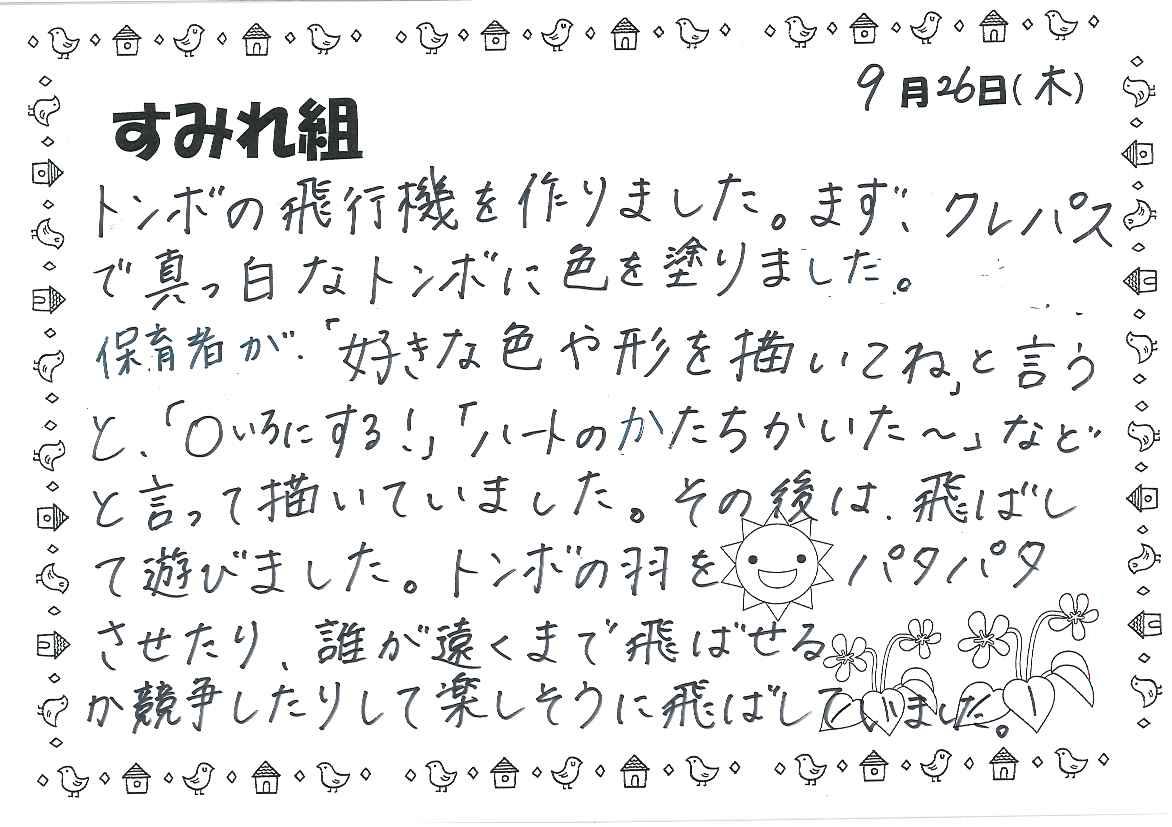 9月26日(木)
すみれ組
トンボの飛行機を作りました。まず、クレパス
で真っ白なトンボに色を塗りました。
保育者が、「好きな色や形を描いてね」と言う
と、「〇いろにする!」「ハートのかたちかいた〜」など
と言って描いていました。その後は、飛ばし
て遊びました。トンボの羽をパタパタ
させたり、誰が遠くまで飛ばせる
か競争したりして楽しそうに飛ばしていました。